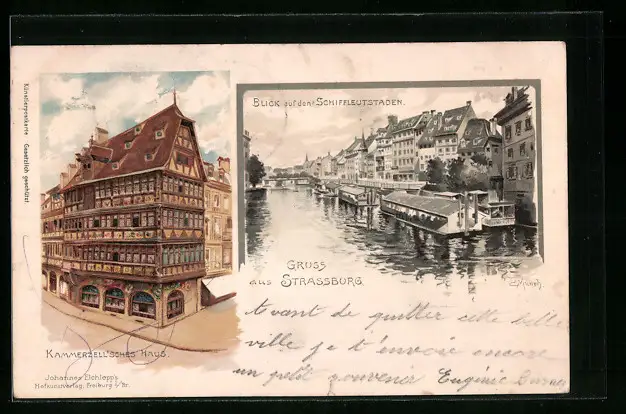 Künstlerpostkarte Gesetzlich geschützt.
BLICK auf den SCHIFFLEUTSTADEN.
GRUSS
aus STRASSBURG
KAMMERZELL'SCHES HAUS.
Johannes Elchlepp's
Hofkunstverlag, Freiburg i/Br.
Avant de quitter cette belle
ville je t'envoie encore
un petit souvenir Eugénie